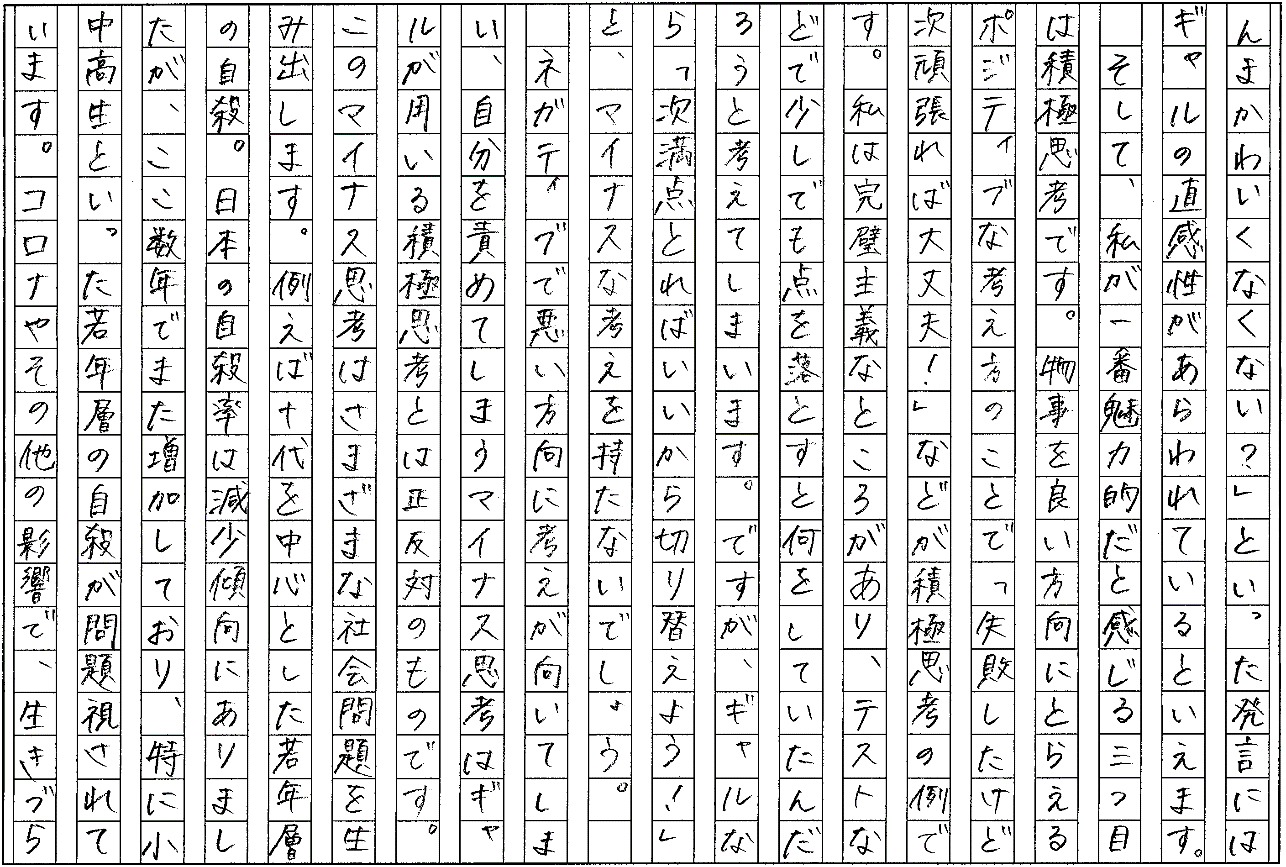 んまかわいくなくない?」といった発言には
ギャルの直感性があらわれているといえます。
そして、私が一番魅力的だと感じる三つ目
は積極思考です。物事を良い方向にとらえる
ポジティブな考え方のことで「失敗したけど
次頑張れば大丈夫!」などが積極思考の例で
す。私は完璧主義なところがあり、テストな
どで少しでも点を落とすと何をしていたんだ
ろうと考えてしまいます。ですが、ギャルな
ら「次満点とればいいから切り替えよう!」
と、マイナスな考えを持たないでしょう。
ネガティブで悪い方向に考えが向いてしま
い、自分を責めてしまうマイナス思考はギャ
ルが用いる積極思考とは正反対のものです。
このマイナス思考はさまざまな社会問題を生
み出します。例えば十代を中心とした若年層
の自殺。日本の自殺率は減少傾向にありまし
たが、ここ数年でまた増加しており、特に小
中高生といった若年層の自殺が問題視されて
います。コロナやその他の影響で、生きづら